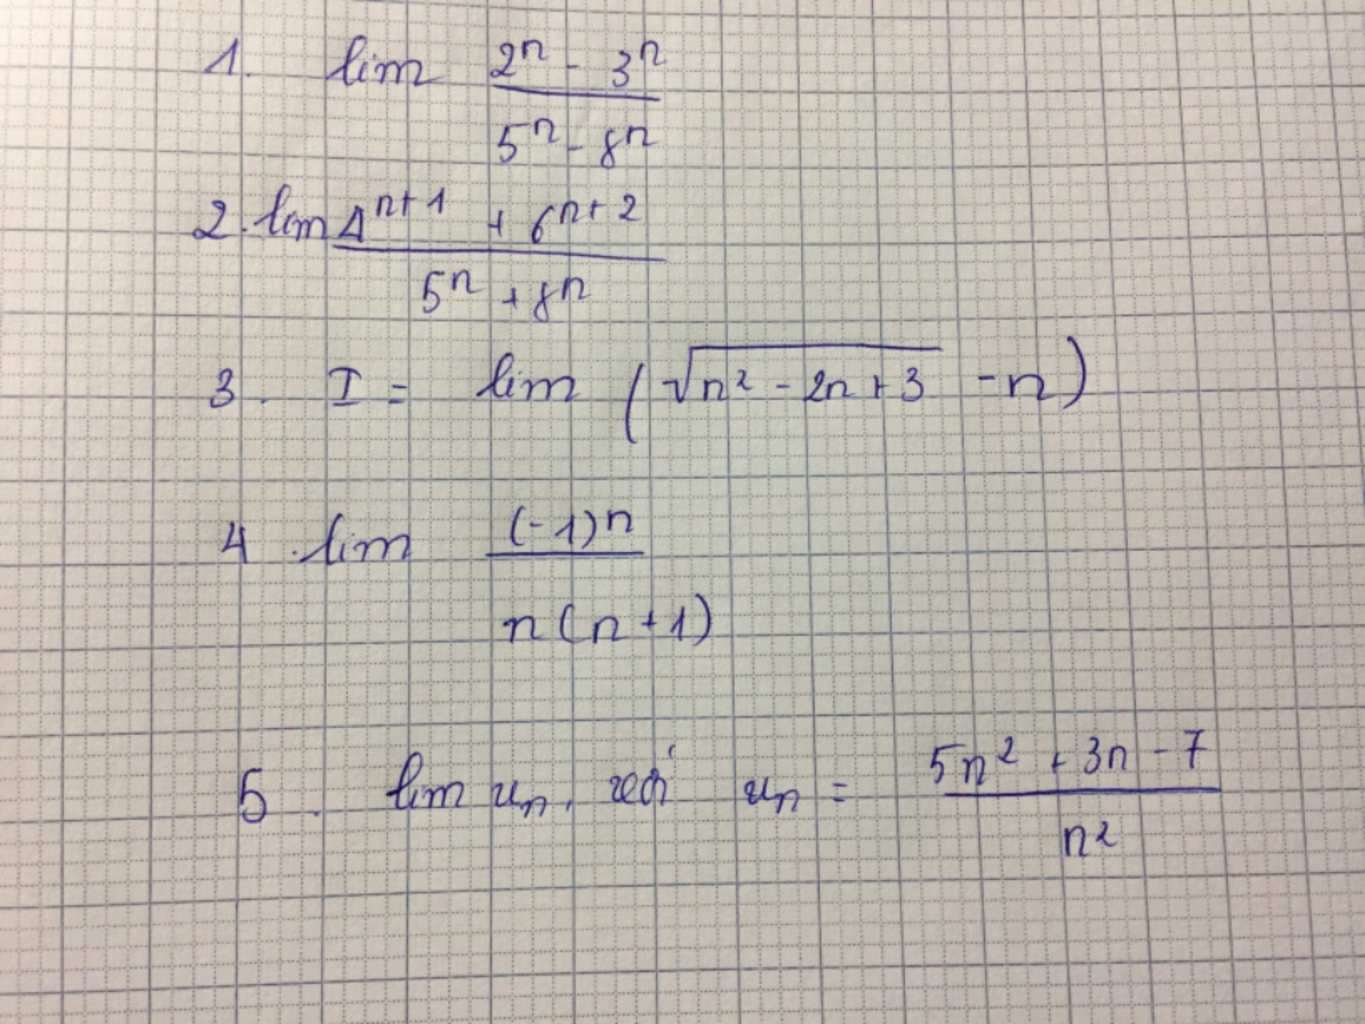 1. lim 2ⁿ - 3ⁿ
5ⁿ - 8ⁿ
2. lim 4ⁿ⁺¹ + 6ⁿ⁺²
5ⁿ + 8ⁿ
3. I = lim (√n² - 2n + 3 - n)
4. lim (-1)ⁿ
n(n+1)
5. lim uₙ, với uₙ = 5n² + 3n - 7
n²